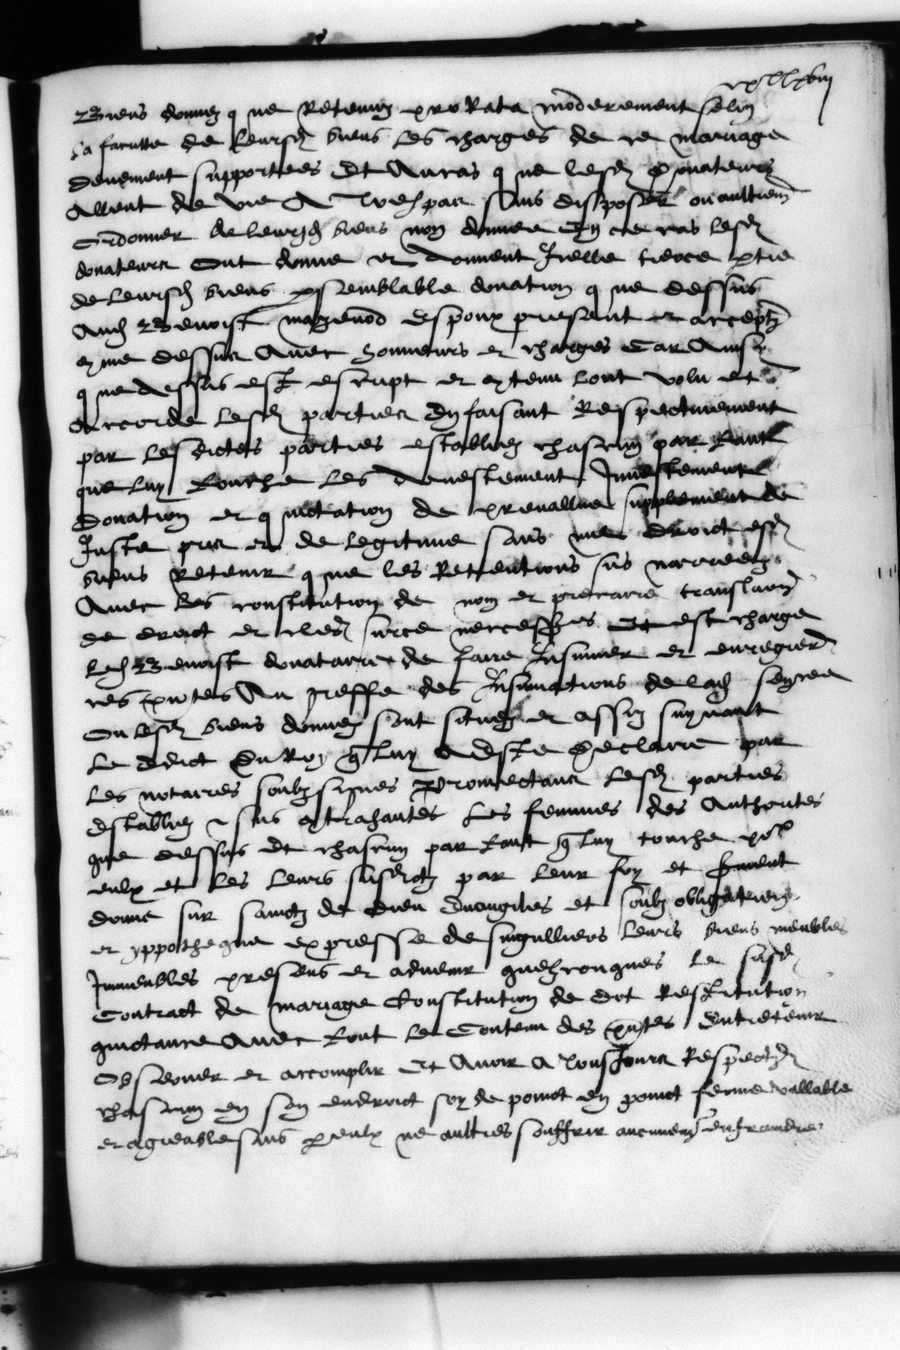 Biens donnez que ne Retenuz pro Rata moderement selon
la faculte de leursd biens les charges de ce mariage
deuement supportees Et Au cas que lesd donateurs
Allent de vie A trespas sans disposer ou aultrem
Ordonner de leursd biens non donnez En ce cas lesd
donateurs Ont donne et donnent Icelle tierce ptie
de leursd biens p semblable donation que dessus
Aud Benoist mazenod espoux present et accept
comme dessus Avec honneurs et charges Car Ainsy
que dessus est escript et contenu l'ont volu et
Accorde lesd parties En faisant Respectivement
par lesdictes parties establies chascun par tant
que luy touche les devestement Investement
donation et quictation de prevallue supplement de
Juste pris et de legitime sans nul droict esd
biens Retenir que les Retentions sus narrees
Avec les constitution de nom et precaire translaon
de droict et cles sur ce necessres Et est charge
led Benoist donatairre de faire Insinuer et enregistr
ces pntes Au greffe des Insinuations de lad senee
Ou lesd biens donnez sont situez et assis suyvant
le Edict du Roy q luy A este declaire par
les notaires soubzsignes Promectans lesd parties
Establies et sus contrahantes les femmes des Authorites
que dessus Et chascun par tant q luy touche pour
eulx et les leurs susdictz par leur foy et serment
donne sur sainctz de dieu Evangiles et soubz obligation
et yppotheque expresse de singulliers leurs biens meubles
Immeubles presens et advenir quelzconques le susd
Contract de mariage Constitution de dot Restitution
quictance Avec tout le Contenu des pntes Entretenir
Observer et accomplir Et Avoir A tousjours Respectifz
chascun en son endroict soy de poinct en poinct ferme vallable
et agreable sans p eulx ne aultres souffrir aucunemt enfraindre